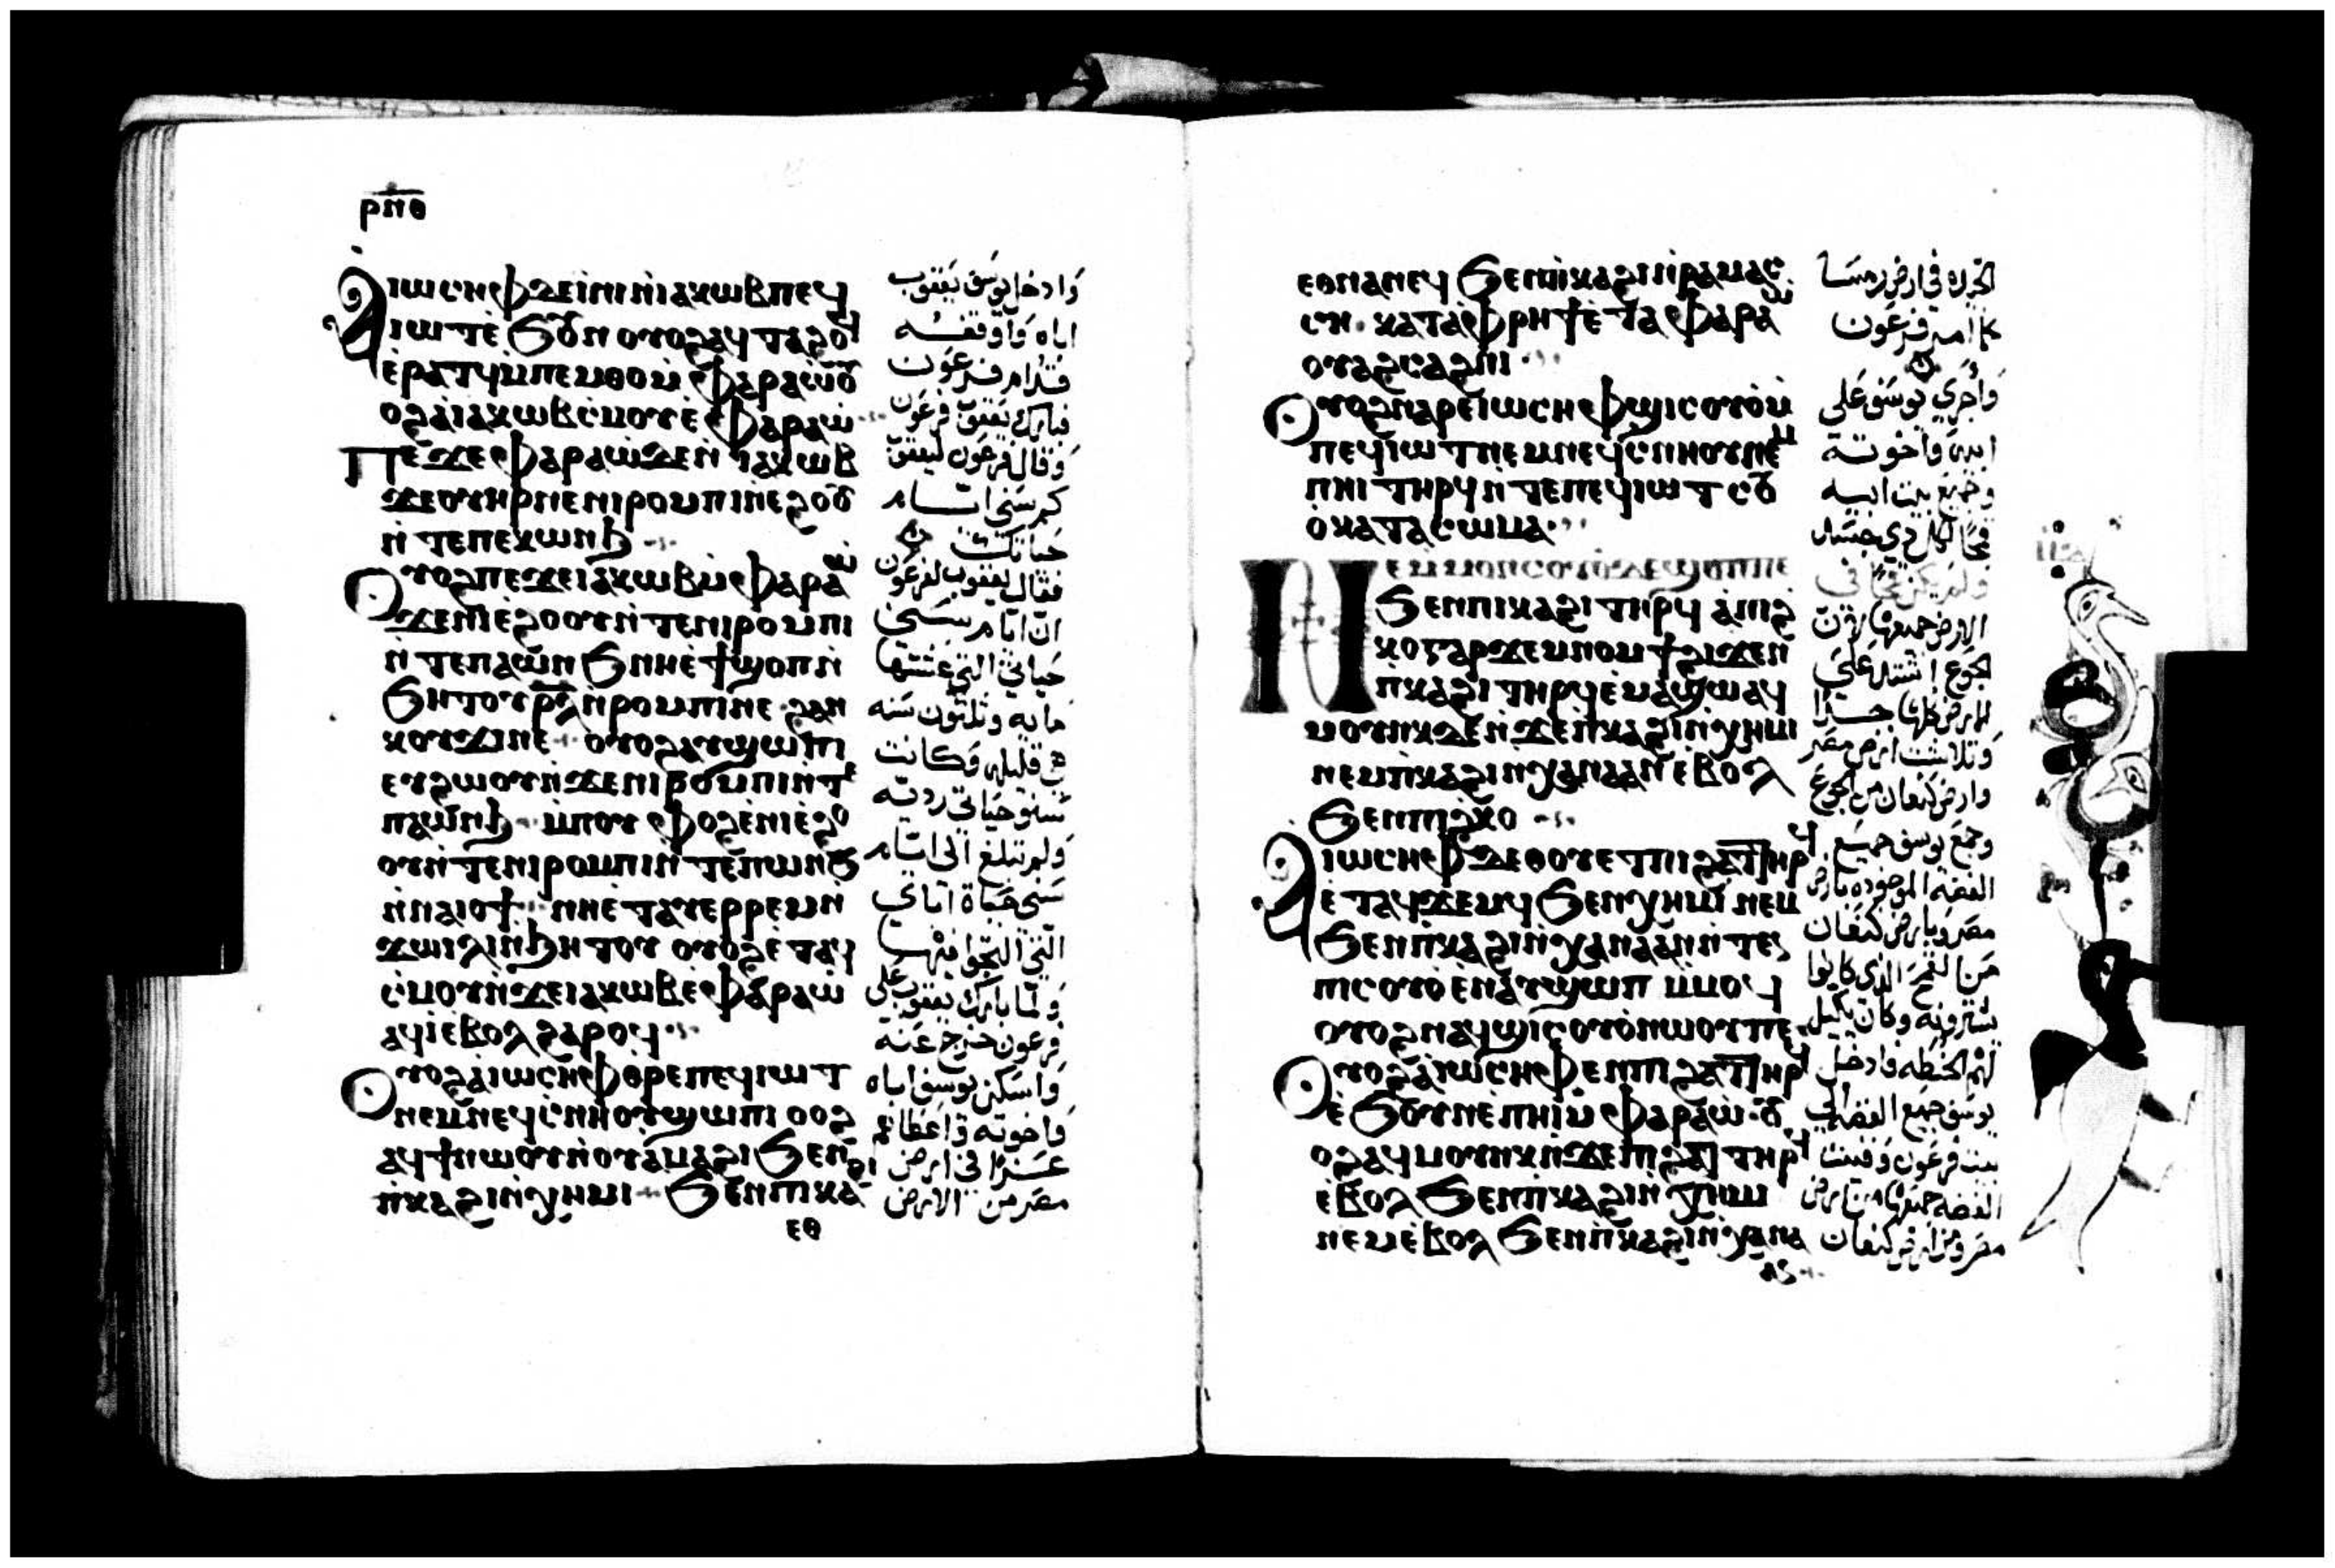 ⲣⲡⲑ
Ⲁⲓⲱⲥⲏⲫ ⲇⲉ ⲓⲛⲓ ⲛⲓⲁⲕⲱⲃ ⲡⲉϥ
ⲓⲱⲧ ⲉϧⲟⲩⲛ ⲟⲩⲟϩ ⲁϥⲧⲁϩⲟϥ
ⲉⲣⲁⲧϥ ⲙⲡⲉⲙⲑⲟ ⲙⲫⲁⲣⲁⲱ ⲟⲩ
ⲟϩ ⲁⲓⲁⲕⲱⲃ ⲥⲙⲟⲩ ⲉⲫⲁⲣⲁⲱ
Ⲡⲉϫⲉ ⲫⲁⲣⲁⲱ ϫⲉⲛ ⲓⲁⲕⲱⲃ
ϫⲉ ⲟⲩⲏⲣ ⲛⲉ ⲛⲓⲣⲟⲙⲡⲓ ⲛⲉϩⲟⲟⲩ
ⲛⲧⲉ ⲡⲉⲕⲱⲛϧ
Ⲟⲩⲟϩ ⲡⲉϫⲉ ⲓⲁⲕⲱⲃ ⲙⲫⲁⲣⲁⲱ
ϫⲉ ⲛⲓⲉϩⲟⲟⲩ ⲛⲧⲉ ⲛⲓⲣⲟⲙⲡⲓ
ⲛⲧⲉ ⲡⲁⲱⲛϧ ⲛⲏⲉϯϣⲟⲡ ⲛ
ϧⲏⲧⲟⲩ ⲣⲗ ⲛⲣⲟⲙⲡⲓ ⲛⲉ ϩⲁⲛ
ⲕⲟⲩϫⲓ ⲛⲉ ⲟⲩⲟϩ ⲁⲩϣⲱⲡⲓ
ⲉⲩϩⲱⲟⲩ ⲛϫⲉ ⲛⲓⲣⲟⲙⲡⲓ ⲛⲧⲉ
ⲡⲁⲱⲛϧ ⲙⲡⲟⲩⲫⲟϩ ⲉⲛⲓⲉϩⲟ
ⲟⲩ ⲛⲧⲉ ⲛⲓⲣⲟⲙⲡⲓ ⲛⲧⲉ ⲡⲱⲛϧ
ⲛⲛⲁⲓⲟϯ ⲛⲏⲉⲧⲁⲩⲉⲣⲣⲉⲙⲛ
ϫⲱⲓⲗⲓ ⲛϧⲏⲧⲟⲩ ⲟⲩⲟϩ ⲉⲧⲁϥ
ⲥⲙⲟⲩ ⲛϫⲉ ⲓⲁⲕⲱⲃ ⲉⲫⲁⲣⲁⲱ
ⲁϥⲓ ⲉⲃⲟⲗ ϩⲁⲣⲟϥ
Ⲟⲩⲟϩ ⲁⲓⲱⲥⲏⲫ ⲑⲣⲉ ⲡⲉϥⲓⲱⲧ
ⲛⲉⲙ ⲛⲉϥⲥⲛⲏⲟⲩ ϣⲱⲡⲓ ⲟⲟϩ
ⲁϥϯ ⲛⲱⲟⲩ ⲛⲟⲩⲁⲙⲁϩⲓ ϧⲉⲛ
ⲡⲕⲁϩⲓ ⲛⲭⲏⲙⲓ ϧⲉⲛ ⲡⲓⲕⲁϩⲓ
ⲉⲑ
وادخل يوسف يعقوب
اباه واوقفه
قدام فرعون
فبارك يعقوب فرعون
وقال فرعون ليعقوب
كم سني ايام
حياتك
فقال يعقوب لفرعون
ان ايام سني
حياتي التي عشتها
مايه وثلثون سنه
هي قليله وكانت
سنو حياتي رديه
ولم تبلغ الى ايام
سني حياة اباي
ولما بارك يعقوب على
فرعون خرج عنه
واسكن يوسف اباه
واخوته واعطاهم
في ارض
مصر من الارض
ⲉⲑⲛⲁⲛⲉϥ ϧⲉⲛ ⲡⲓⲕⲁϩⲓ ⲛⲣⲁⲙⲁⲥ
ⲥⲏ ⲕⲁⲧⲁ ⲫⲣⲏϯ ⲉⲧⲁ ⲫⲁⲣⲁⲱ
ⲟⲩⲁϩⲥⲁϩⲛⲓ
Ⲟⲩⲟϩ ⲛⲁⲣⲉ ⲓⲱⲥⲏⲫ ϣⲓ ⲥⲟⲩⲟ ⲙ
ⲡⲉϥⲓⲱⲧ ⲛⲉⲙ ⲛⲉϥⲥⲛⲏⲟⲩ ⲛⲉⲙ
ⲡⲏⲓ ⲧⲏⲣϥ ⲛⲧⲉ ⲡⲉϥⲓⲱⲧ ⲥⲟⲩ
ⲟ ⲕⲁⲧⲁ ⲥⲱⲙⲁ
Ⲛⲉ ⲙⲙⲟⲛ ⲥⲟⲩⲟ ⲇⲉ ϣⲟⲡ ⲡⲉ
ϧⲉⲛ ⲡⲓⲕⲁϩⲓ ⲧⲏⲣϥ ⲁⲡⲓϩ
ⲕⲟ ⲅⲁⲣ ϫⲉⲙⲛⲟⲙϯ ϩⲓϫⲉⲛ
ⲡⲕⲁϩⲓ ⲧⲏⲣϥ ⲉⲙⲁϣⲱ ⲁϥ
ⲙⲟⲩⲛⲕ ⲇⲉ ⲛϫⲉ ⲡⲕⲁϩⲓ ⲛⲭⲏⲙⲓ
ⲛⲉⲙ ⲡⲕⲁϩⲓ ⲛⲭⲁⲛⲁⲁⲛ ⲉⲃⲟⲗ
ϧⲉⲛ ⲡⲓϩⲕⲟ
Ⲁⲓⲱⲥⲏⲫ ⲇⲉ ⲑⲟⲩⲉⲧ ⲡⲓϩⲁⲧ ⲧⲏⲣϥ
ⲉⲧⲁϥϫⲉⲙϥ ϧⲉⲛ ⲭⲏⲙⲓ ⲛⲉⲙ
ϧⲉⲛ ⲡⲕⲁϩⲓ ⲛⲭⲁⲛⲁⲁⲛ ⲛⲧⲉ
ⲡⲓⲥⲟⲩⲟ ⲉⲛⲁⲩϣⲱⲡ ⲙⲙⲟϥ
ⲟⲩⲟϩ ⲛⲁϥϣⲓ ⲥⲟⲩⲟ ⲛⲱⲟⲩ ⲡⲉ
Ⲟⲩⲟϩ ⲁⲓⲱⲥⲏⲫ ⲉⲛ ⲡⲓϩⲁⲧ ⲧⲏⲣϥ
ⲉϧⲟⲩⲛ ⲉⲡⲏⲓ ⲙⲫⲁⲣⲁⲱ ⲟⲩ
ⲟϩ ⲁϥⲙⲟⲩⲛⲕ ⲛϫⲉ ⲡⲓϩⲁⲧ ⲧⲏⲣϥ
ⲉⲃⲟⲗ ϧⲉⲛ ⲡⲕⲁϩⲓ ⲛⲭⲏⲙⲓ
ⲛⲉⲙ ⲉⲃⲟⲗ ϧⲉⲛ ⲡⲕⲁϩⲓ ⲛⲭⲁⲛⲁ
ⲁⲛ
في ارض رمسا
كما امر فرعون
واجرى يوسف على
ابيه واخوته
وجميع بيت ابيه
قمحا لكل ذي جسد
ولم يكن قمحا في
الارض جميعها لان
الجوع اشتد على
الارض كلها جدا
وتلاشت ارض مصر
وارض كنعان من الجوع
وجمع يوسف جميع
الفضه الموجوده بارض
مصر وبارض كنعان
من القمح الذي كانوا
يشترونه وكان يكيل
لهم الحنطه فادخل
يوسف جميع الفضه الى
بيت فرعون وفنيت
الفضه جميعها من ارض
مصر ومن ارض كنعان